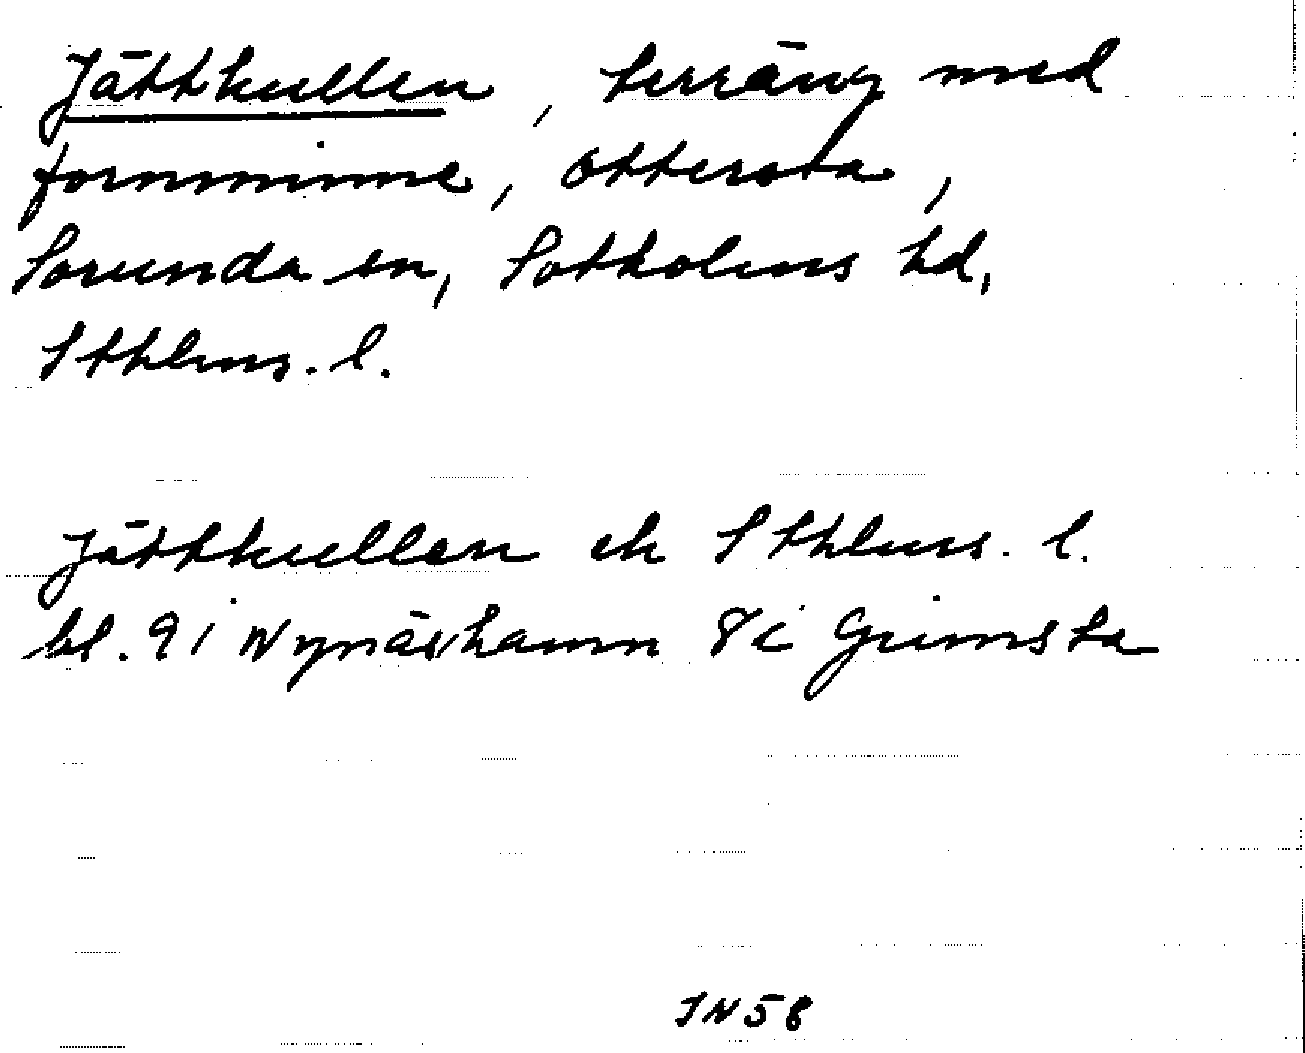 Jättkullen, terräng med
fornminne, Ottersta,
Sorunda sn, Sotholms hd,
Sthlms. l.
Jättkullen ek Sthlms. l.
bl. 9 i Nynäshamn 8 i Grimsta
JN 58